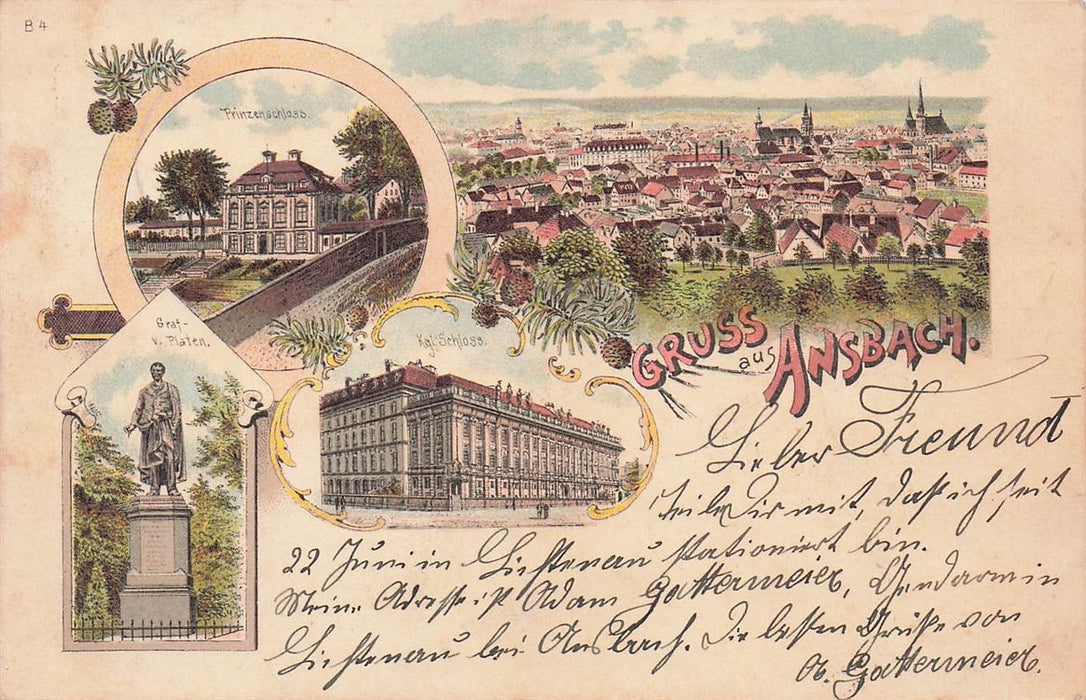 B 4
Prinzenschloss.
Graf-
v. Platen.
Kgl. Schloss.
GRUSS aus ANSBACH.
Lieber Freund
teile Dir mit, daß ich seit
22 Juni in Lichtenau stationiert bin.
Meine Adresse ist Adam Gattermeier, Gendarm in
Lichtenau bei Ansbach. Die besten Grüße von
A. Gattermeier.